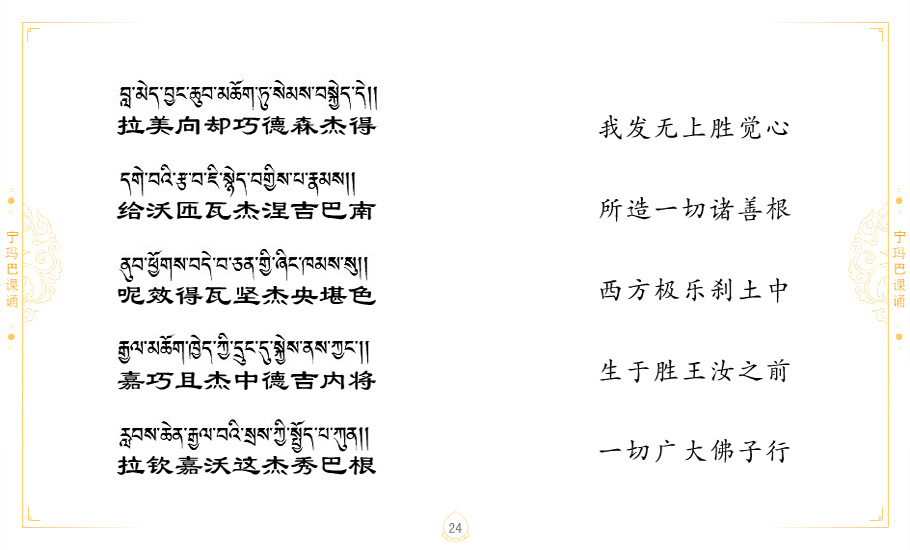 བླ་མེད་བྱང་ཆུབ་མཆོག་ཏུ་སེམས་བསྐྱེད་དེ།།
拉美向却巧德森杰得
我发无上胜觉心
དགེ་བའི་རྩ་བ་ཇི་སྙེད་བགྱིས་པ་རྣམས།།
给沃匝瓦杰涅吉巴南
所造一切诸善根
ནུབ་ཕྱོགས་བདེ་བ་ཅན་གྱི་ཞིང་ཁམས་སུ།།
呢效得瓦坚杰央堪色
西方极乐刹土中
རྒྱལ་མཆོག་ཁྱེད་ཀྱི་དྲུང་དུ་སྐྱེས་ནས་ཀྱང་།།
嘉巧且杰中德吉内将
生于胜王汝之前
རླབས་ཆེན་རྒྱལ་བའི་སྲས་ཀྱི་སྤྱོད་པ་ཀུན།།
拉钦嘉沃这杰秀巴根
一切广大佛子行
宁玛巴课诵
宁玛巴课诵
24